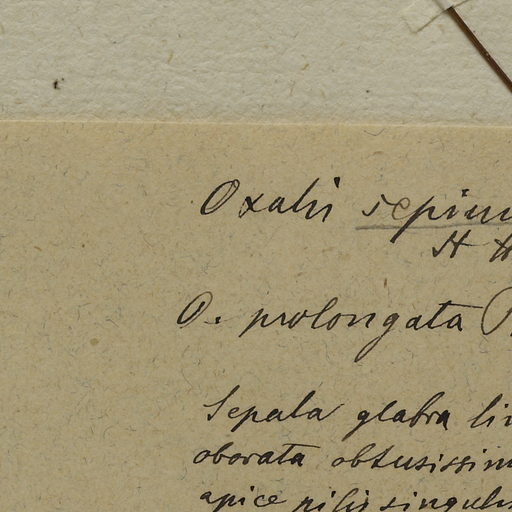 Oxalis sepium
H H
O. prolongata
Sepala glabra lin
obovata obtusissim
apice pilis singulis